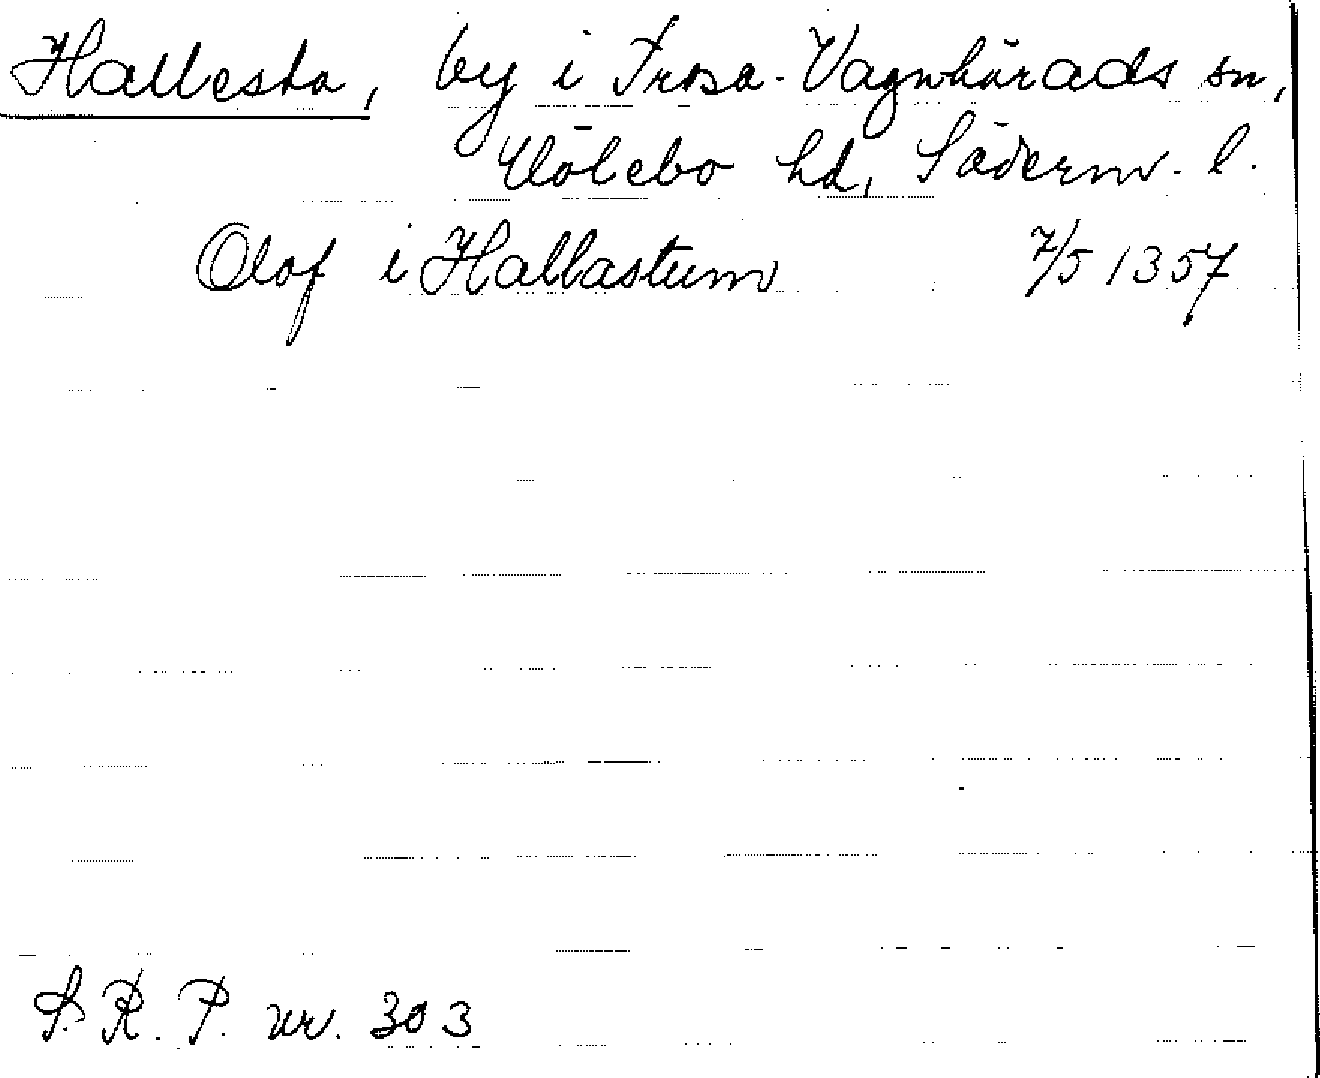 Hallesta, by i Trosa-Vagnhärads sn,
Hölebo hd, Söderm. l.
Olof i Hallastum 7/5 1357
S. R. P. nr. 303